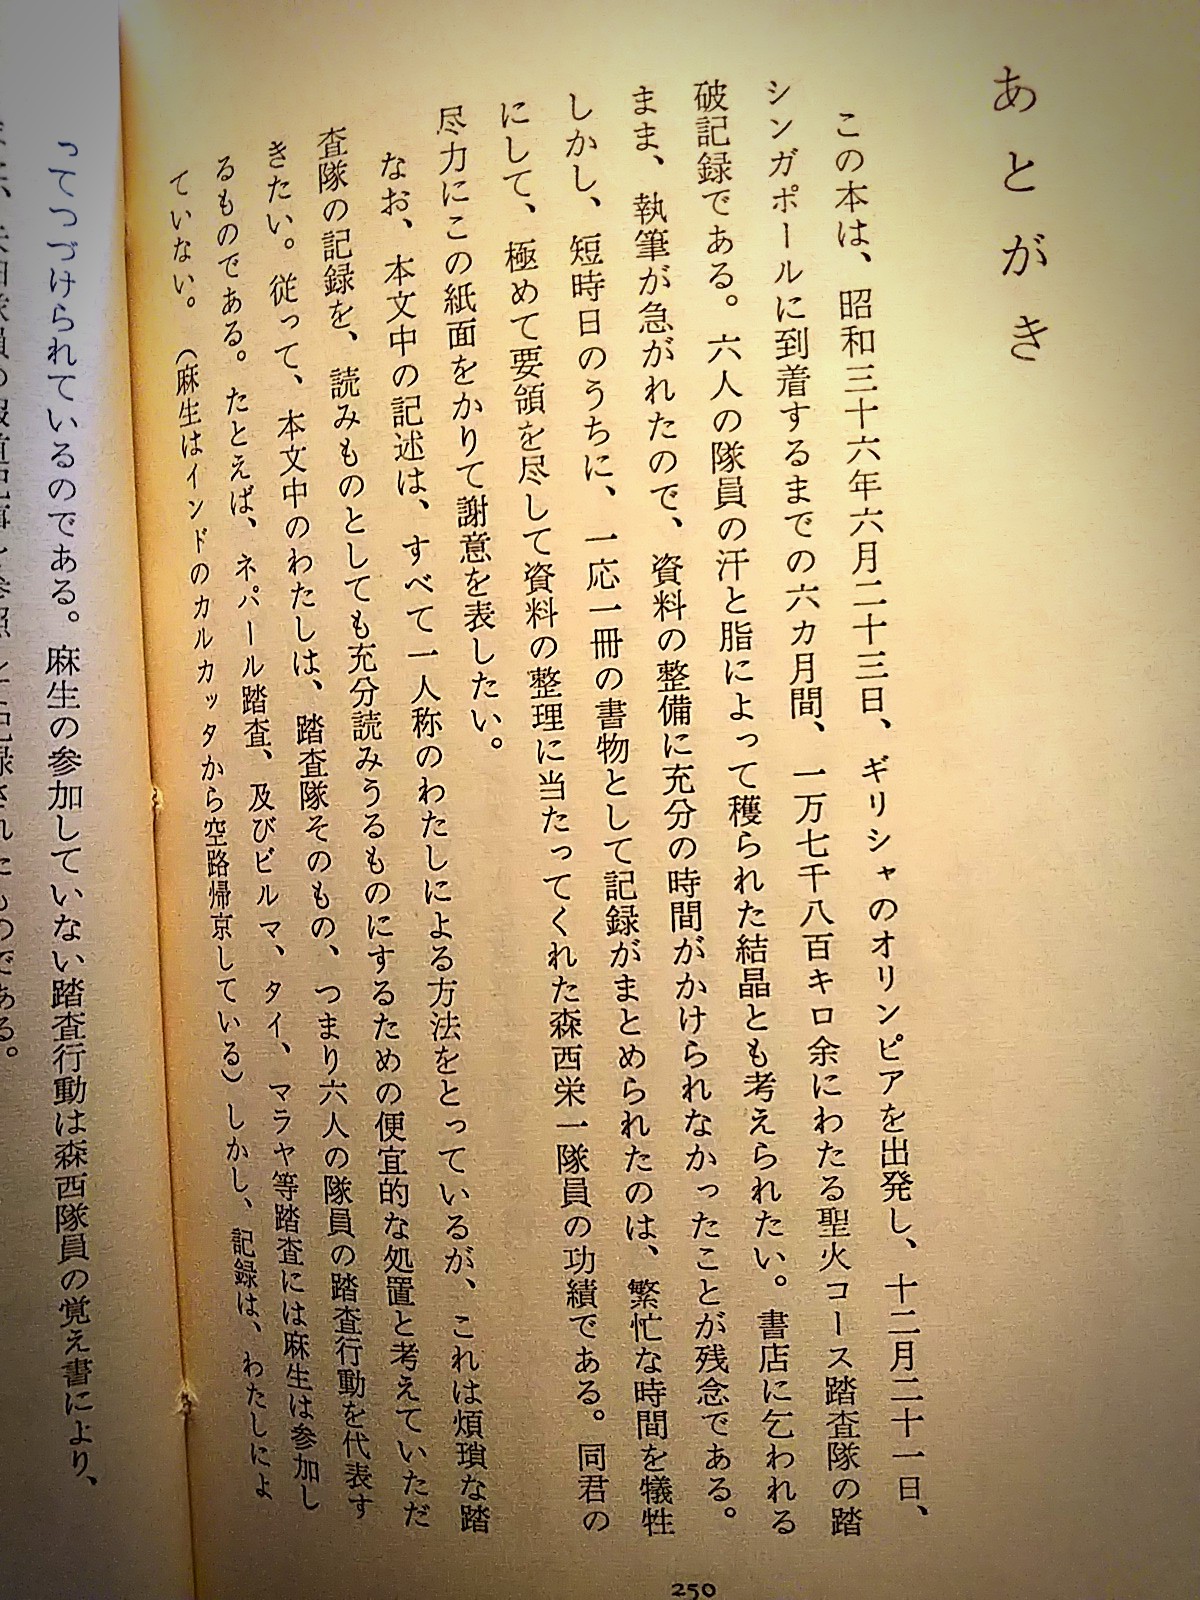 あとがき
この本は、昭和三十六年六月二十三日、ギリシャのオリンピアを出発し、十二月二十一日、
シンガポールに到着するまでの六カ月間、一万七千八百キロ余にわたる聖火コース踏査隊の踏
破記録である。六人の隊員の汗と脂によって穫られた結晶とも考えられたい。書店に乞われる
まま、執筆が急がれたので、資料の整備に充分の時間がかけられなかったことが残念である。
しかし、短時日のうちに、一応一冊の書物として記録がまとめられたのは、繁忙な時間を犠牲
にして、極めて要領を尽して資料の整理に当たってくれた森西栄一隊員の功績である。同君の
尽力にこの紙面をかりて謝意を表したい。
なお、本文中の記述は、すべて一人称のわたしによる方法をとっているが、これは煩瑣な踏
査隊の記録を、読みものとしても充分読みうるものにするための便宜的な処置と考えていただ
きたい。従って、本文中のわたしは、踏査隊そのもの、つまり六人の隊員の踏査行動を代表す
るものである。たとえば、ネパール踏査、及びビルマ、タイ、マラヤ等踏査には麻生は参加し
ていない。（麻生はインドのカルカッタから空路帰京している）しかし、記録は、わたしによ
250
ってつづけられているのである。麻生の参加していない踏査行動は森西隊員の覚え書により、
記録されたものである。